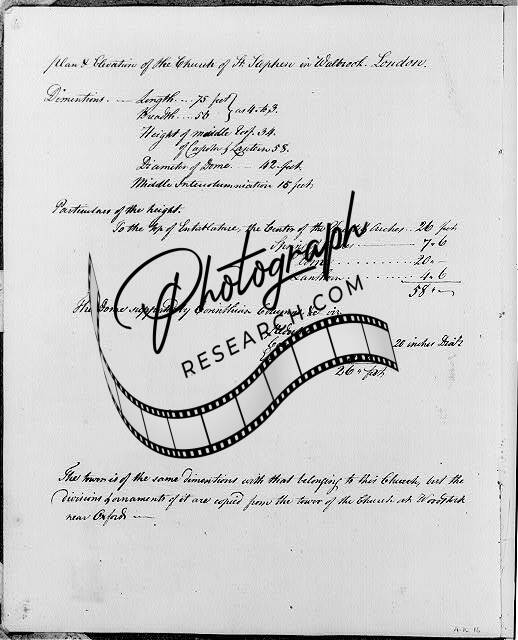 Plan & Elevation of the Church of St Stephen in Walbrook. London.
Dimentions. Length. 75 feet
Breadth 56 } as 4 to 3.
Height of middle 34.
of Cupola & Lantern 58.
Diameter of Dome 42 feet
Middle Intercolumniation 15 feet.
Particulars of the height.
To the top of Entablature, the Center of the Arches 26 feet
7.6
20
Lanthorn 4.6
58
The Dome supported by Corinthian Columns
20 inches Diatr
26 feet
The tower is of the same dimentions with that belonging to this Church, but the
divisions & ornaments of it are copied from the tower of the Church at Woodstock
near Oxford
Photograph
RESEARCH.COM
A.K. 16